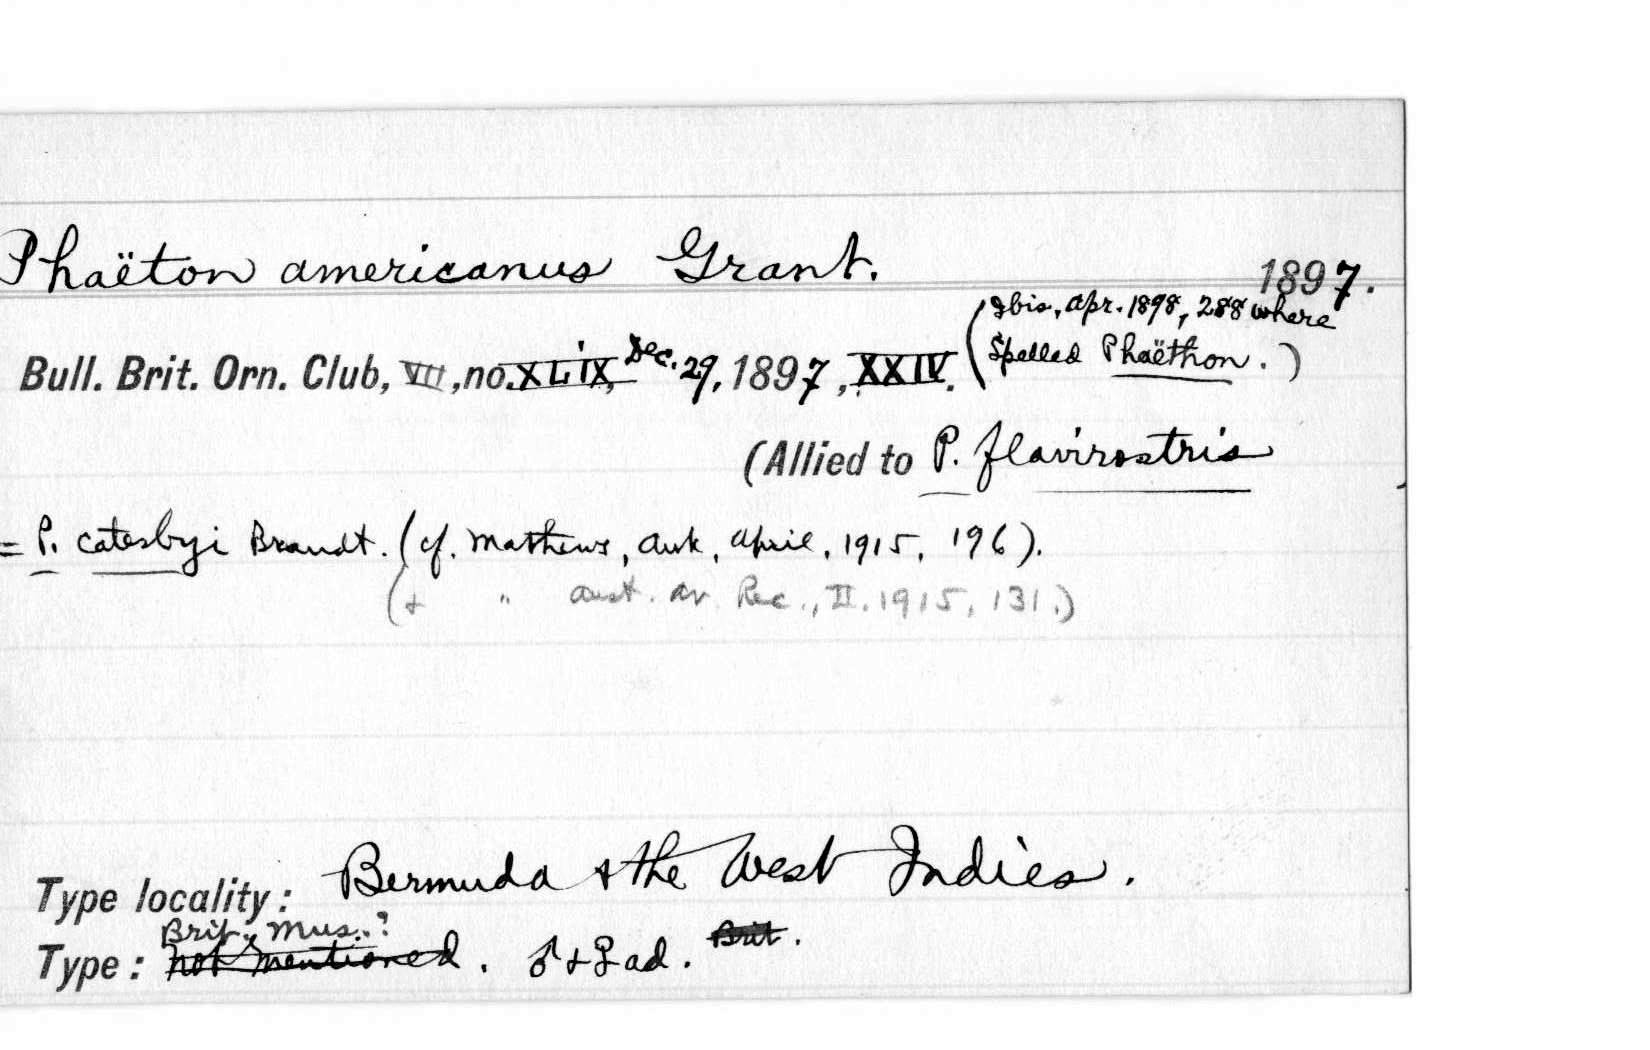 Phaëton americanus Grant. 1897.
(Ibis, Apr. 1898, 288 where
Spelled Phaëthon.)
Bull. Brit. Orn. Club, VII, no. XLIX, Dec. 29, 1897, XXIV.
(Allied to P. flavirostris
= P. catesbyi Brandt. (cf. Mathews, Auk, April, 1915, 196).
(& " Aust. Av. Rec., II. 1915, 131.)
Type locality: Bermuda & the West Indies.
Brit. Mus.?
Type: not mentioned. ♂ & ♀ ad. Brit.